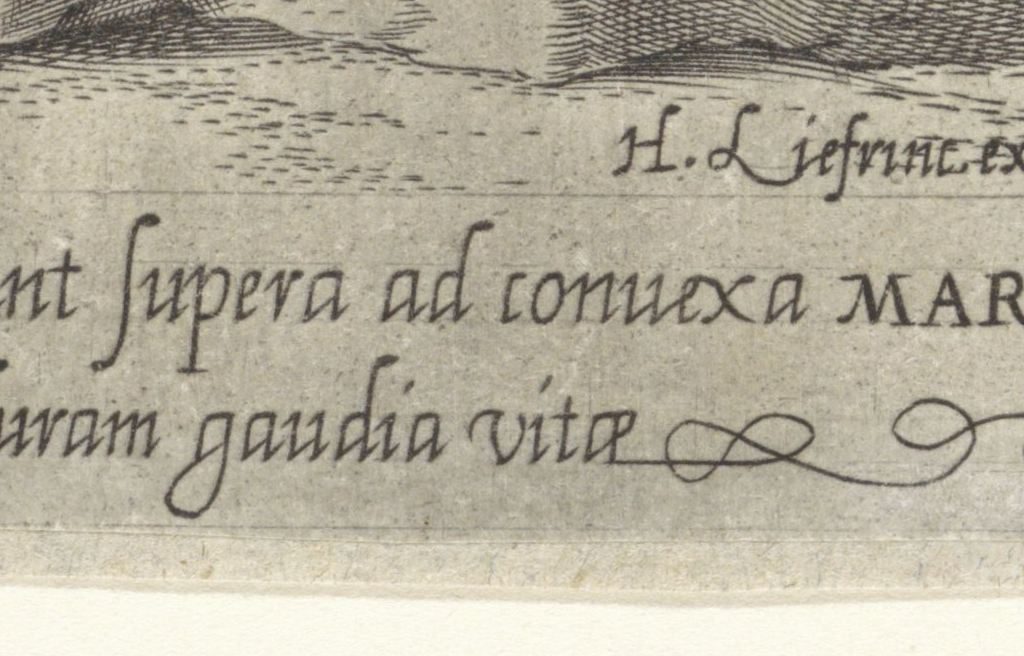 H. Liefrinc. ex
nt ſupera ad conuexa MAR
uram gaudia vitæ